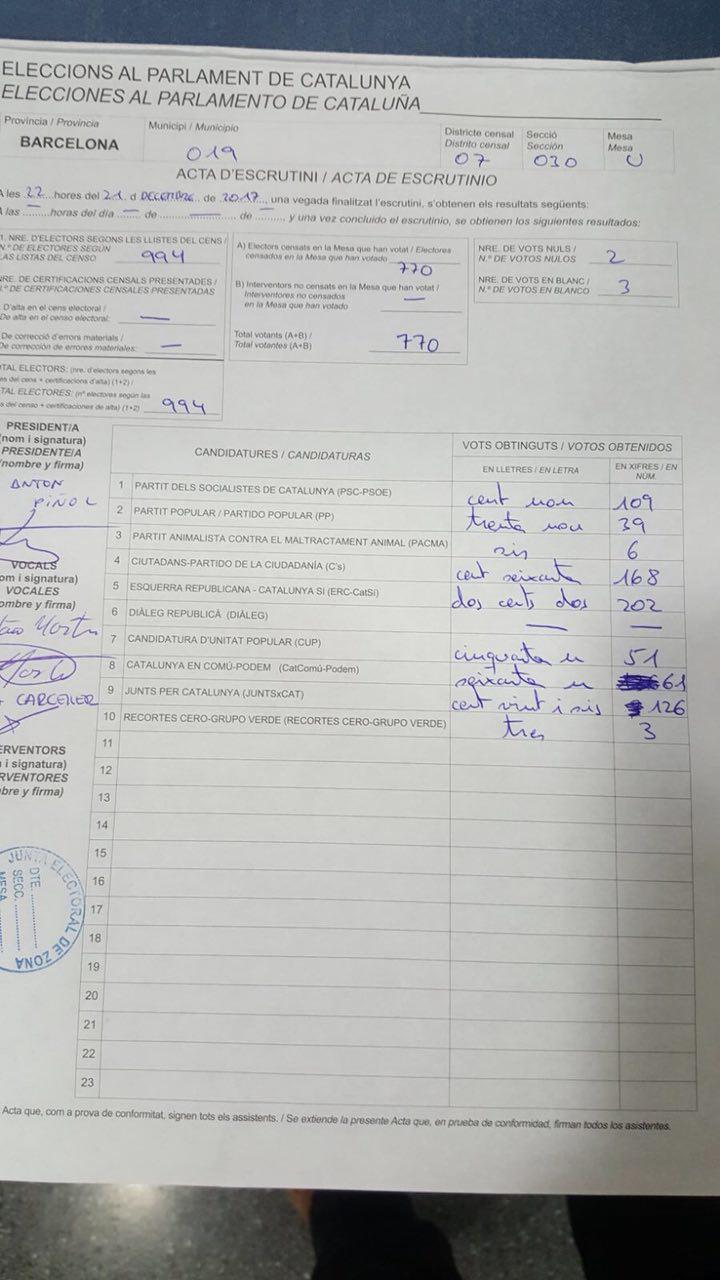 ELECCIONS AL PARLAMENT DE CATALUNYA
ELECCIONES AL PARLAMENTO DE CATALUÑA
Província / Provincia
BARCELONA
Municipi / Municipio
019
Districte censal
Distrito censal
07
Secció
Sección
030
Mesa
Mesa
U
ACTA D'ESCRUTINI / ACTA DE ESCRUTINIO
A les 22 hores del 21 d DECEMBRE de 2017, una vegada finalitzat l'escrutini, s'obtenen els resultats següents:
A las ........ horas del día — de — de ........, y una vez concluido el escrutinio, se obtienen los siguientes resultados:
1. NRE. D'ELECTORS SEGONS LES LLISTES DEL CENS /
N.º DE ELECTORES SEGÚN
LAS LISTAS DEL CENSO 994
NRE. DE CERTIFICACIONS CENSALS PRESENTADES /
N.º DE CERTIFICACIONES CENSALES PRESENTADAS
D'alta en el cens electoral /
De alta en el censo electoral: —
De correcció d'errors materials /
De corrección de errores materiales: —
TAL ELECTORS: (nre. d'electors segons les
es del cens + certificacions d'alta) (1+2) /
TAL ELECTORES: (nº electores según las
s del censo + certificaciones de alta) (1+2) 994
A) Electors censats en la Mesa que han votat / Electores
censados en la Mesa que han votado 770
B) Interventors no censats en la Mesa que han votat /
Interventores no censados
en la Mesa que han votado —
Total votants (A+B) /
Total votantes (A+B) 770
NRE. DE VOTS NULS /
N.º DE VOTOS NULOS 2
NRE. DE VOTS EN BLANC /
N.º DE VOTOS EN BLANCO 3
PRESIDENT/A
(nom i signatura)
PRESIDENTE/A
(nombre y firma)
ANTON
PIÑOL
VOCALS
om i signatura)
VOCALES
ombre y firma)
CARCELLER
ERVENTORS
i signatura)
RVENTORES
bre y firma)
CANDIDATURES / CANDIDATURAS
VOTS OBTINGUTS / VOTOS OBTENIDOS
EN LLETRES / EN LETRA
EN XIFRES / EN NÚM.
1 PARTIT DELS SOCIALISTES DE CATALUNYA (PSC-PSOE) cent nou 109
2 PARTIT POPULAR / PARTIDO POPULAR (PP) trenta nou 39
3 PARTIT ANIMALISTA CONTRA EL MALTRACTAMENT ANIMAL (PACMA) sis 6
4 CIUTADANS-PARTIDO DE LA CIUDADANÍA (C's) cent seixanta 168
5 ESQUERRA REPUBLICANA - CATALUNYA SÍ (ERC-CatSí) dos cents dos 202
6 DIÀLEG REPUBLICÀ (DIÀLEG) — —
7 CANDIDATURA D'UNITAT POPULAR (CUP) cinquanta u 51
8 CATALUNYA EN COMÚ-PODEM (CatComú-Podem) seixanta u 61
9 JUNTS PER CATALUNYA (JUNTSxCAT) cent vint i sis 126
10 RECORTES CERO-GRUPO VERDE (RECORTES CERO-GRUPO VERDE) tres 3
11
12
13
14
15
16
17
18
19
20
21
22
23
JUNTA ELECTORAL DE ZONA
DTE.
SECC.
MESA
Acta que, com a prova de conformitat, signen tots els assistents. / Se extiende la presente Acta que, en prueba de conformidad, firman todos los asistentes.